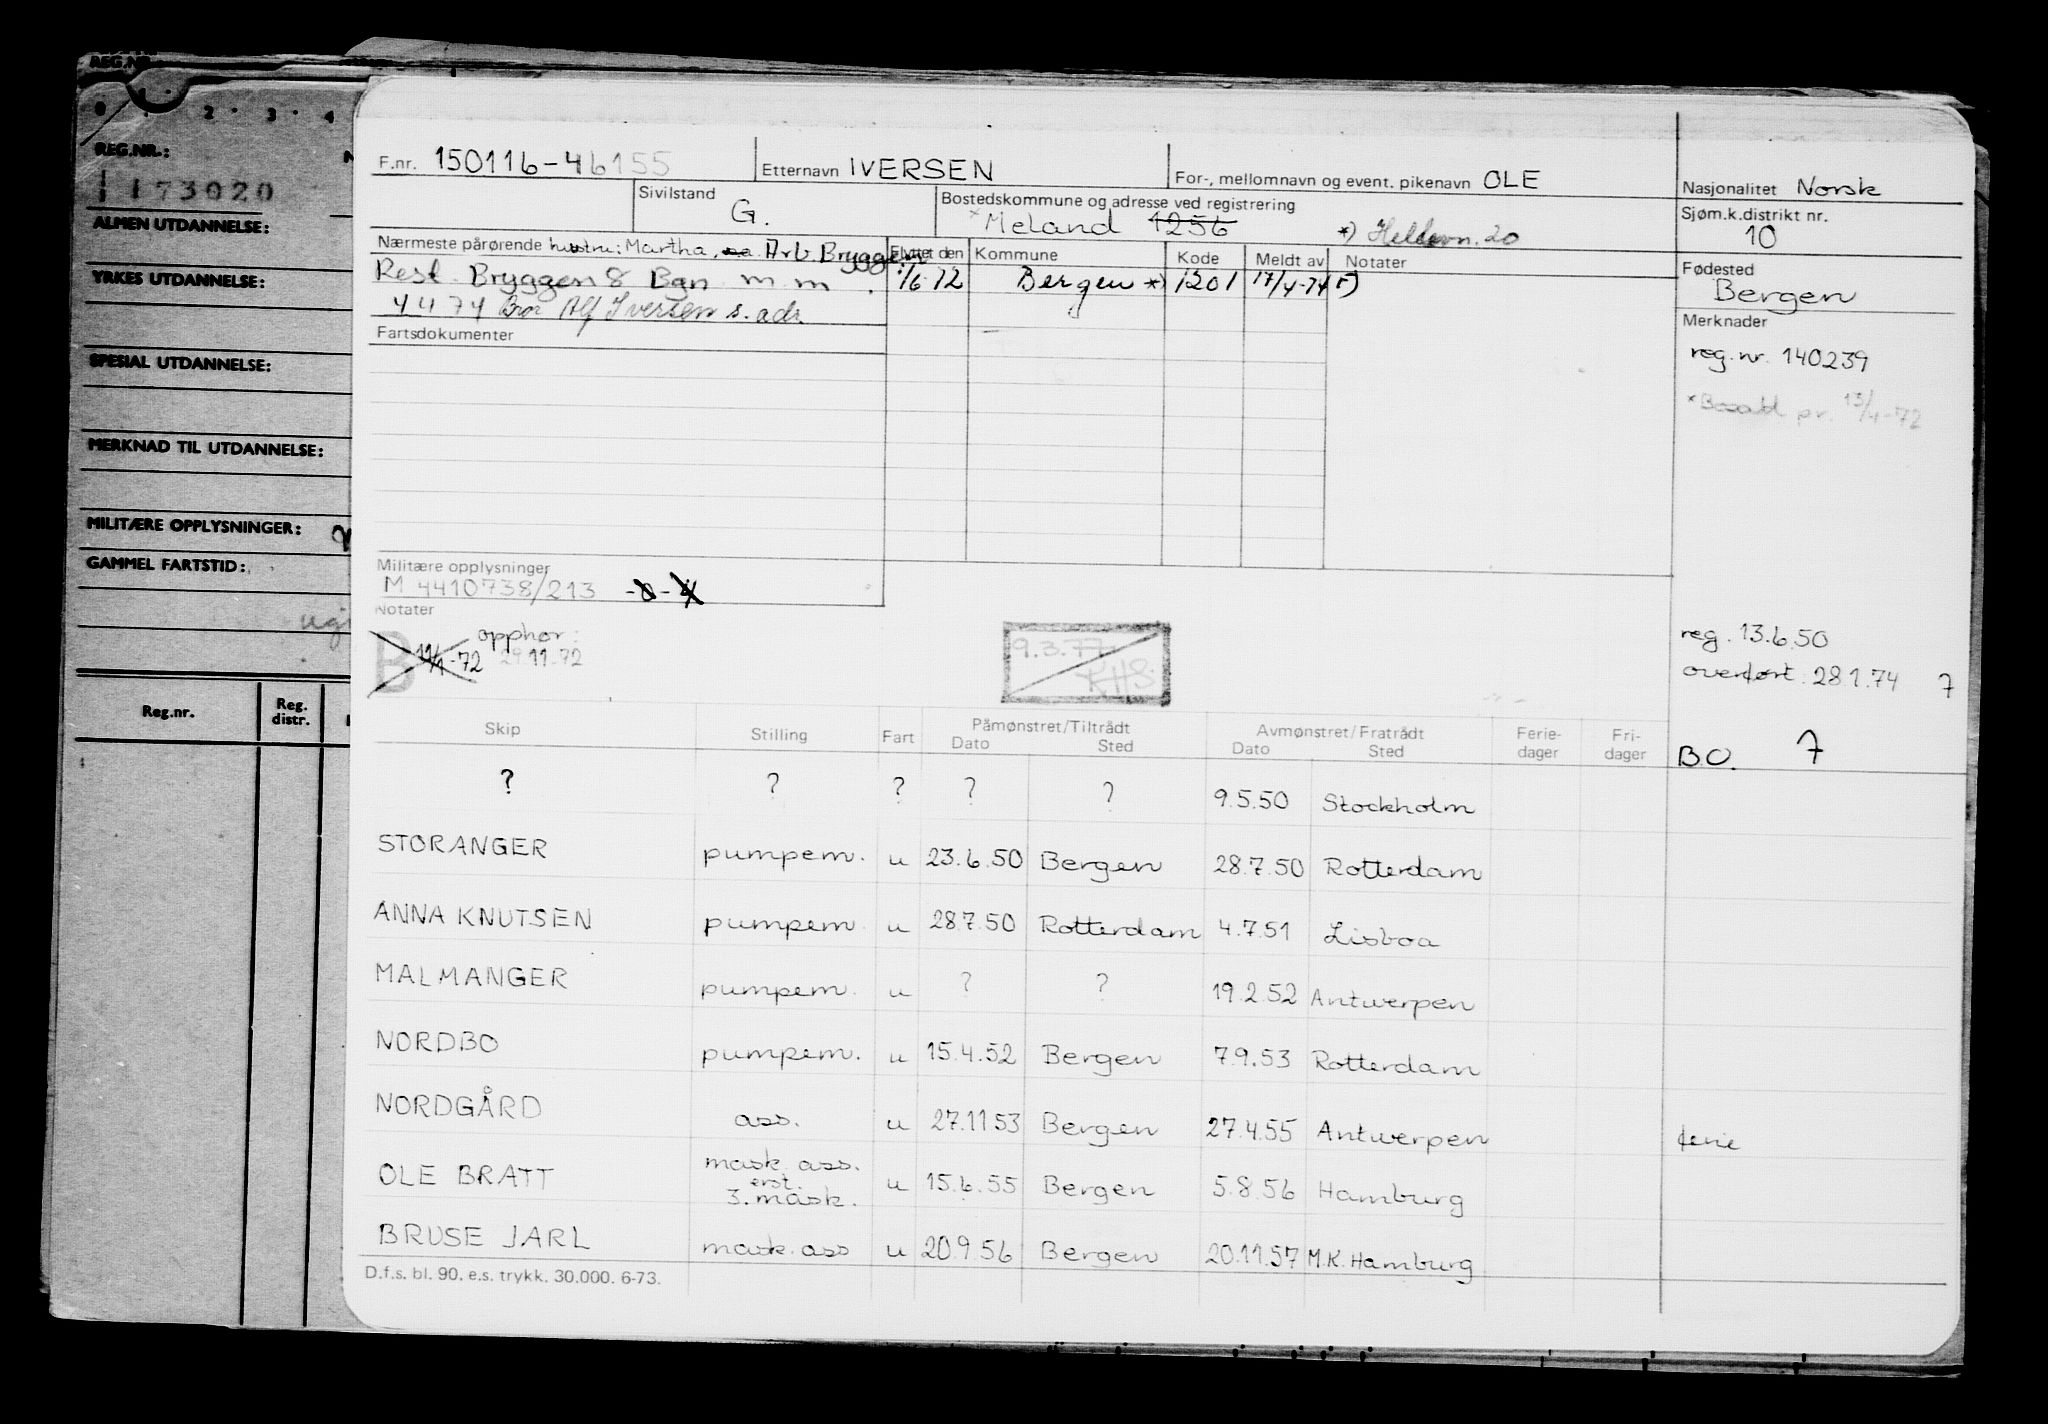 REG.NR.
0 1 2 3 4
REG.NR.:
173020
ALMEN UTDANNELSE:
YRKES UTDANNELSE:
SPESIAL UTDANNELSE:
MERKNAD TIL UTDANNELSE:
MILITÆRE OPPLYSNINGER:
GAMMEL FARTSTID:
Reg.nr. Reg. distr.
F.nr. 150116-46155 Etternavn IVERSEN For-, mellomnavn og event. pikenavn OLE Nasjonalitet Norsk
Sivilstand G. Bostedskommune og adresse ved registrering Sjøm.k.distrikt nr.
*Meland 1256 *) 20 10
Nærmeste pårørende hustru: Martha, Arb. Bryggen Flyttet den Kommune Kode Meldt av Notater Fødested
Rest. Bryggen 8 Bgn m.m. 1/6-72 Bergen *) 1201 17/4-74 Bergen
4474 Bror Alf Iversen s. adr.
Fartsdokumenter
Merknader
reg. nr. 140239
*Bosatt pr. 13/4-72
Militære opplysninger
M 4410738/213
Notater
B 11/1-72 opphør: 29.11.72
9.3.77 KHS.
reg. 13.6.50
overført 28.1.74 7
Skip Stilling Fart Påmønstret/Tiltrådt Dato Sted Avmønstret/Fratrådt Dato Sted Ferie-dager Fri-dager B.O. 7
? ? ? ? ? 9.5.50 Stockholm
STORANGER pumpem. u 23.6.50 Bergen 28.7.50 Rotterdam
ANNA KNUTSEN pumpem. u 28.7.50 Rotterdam 4.7.51 Lisboa
MALMANGER pumpem. u ? ? 19.2.52 Antwerpen
NORDBO pumpem. u 15.4.52 Bergen 7.9.53 Rotterdam
NORDGÅRD ass. u 27.11.53 Bergen 27.4.55 Antwerpen ferie
OLE BRATT mask. ass. erst. 3. mask. u 15.6.55 Bergen 5.8.56 Hamburg
BRUSE JARL mask. ass u 20.9.56 Bergen 20.11.57 M.K. Hamburg
D.f.s. bl. 90. e.s. trykk. 30.000. 6-73.